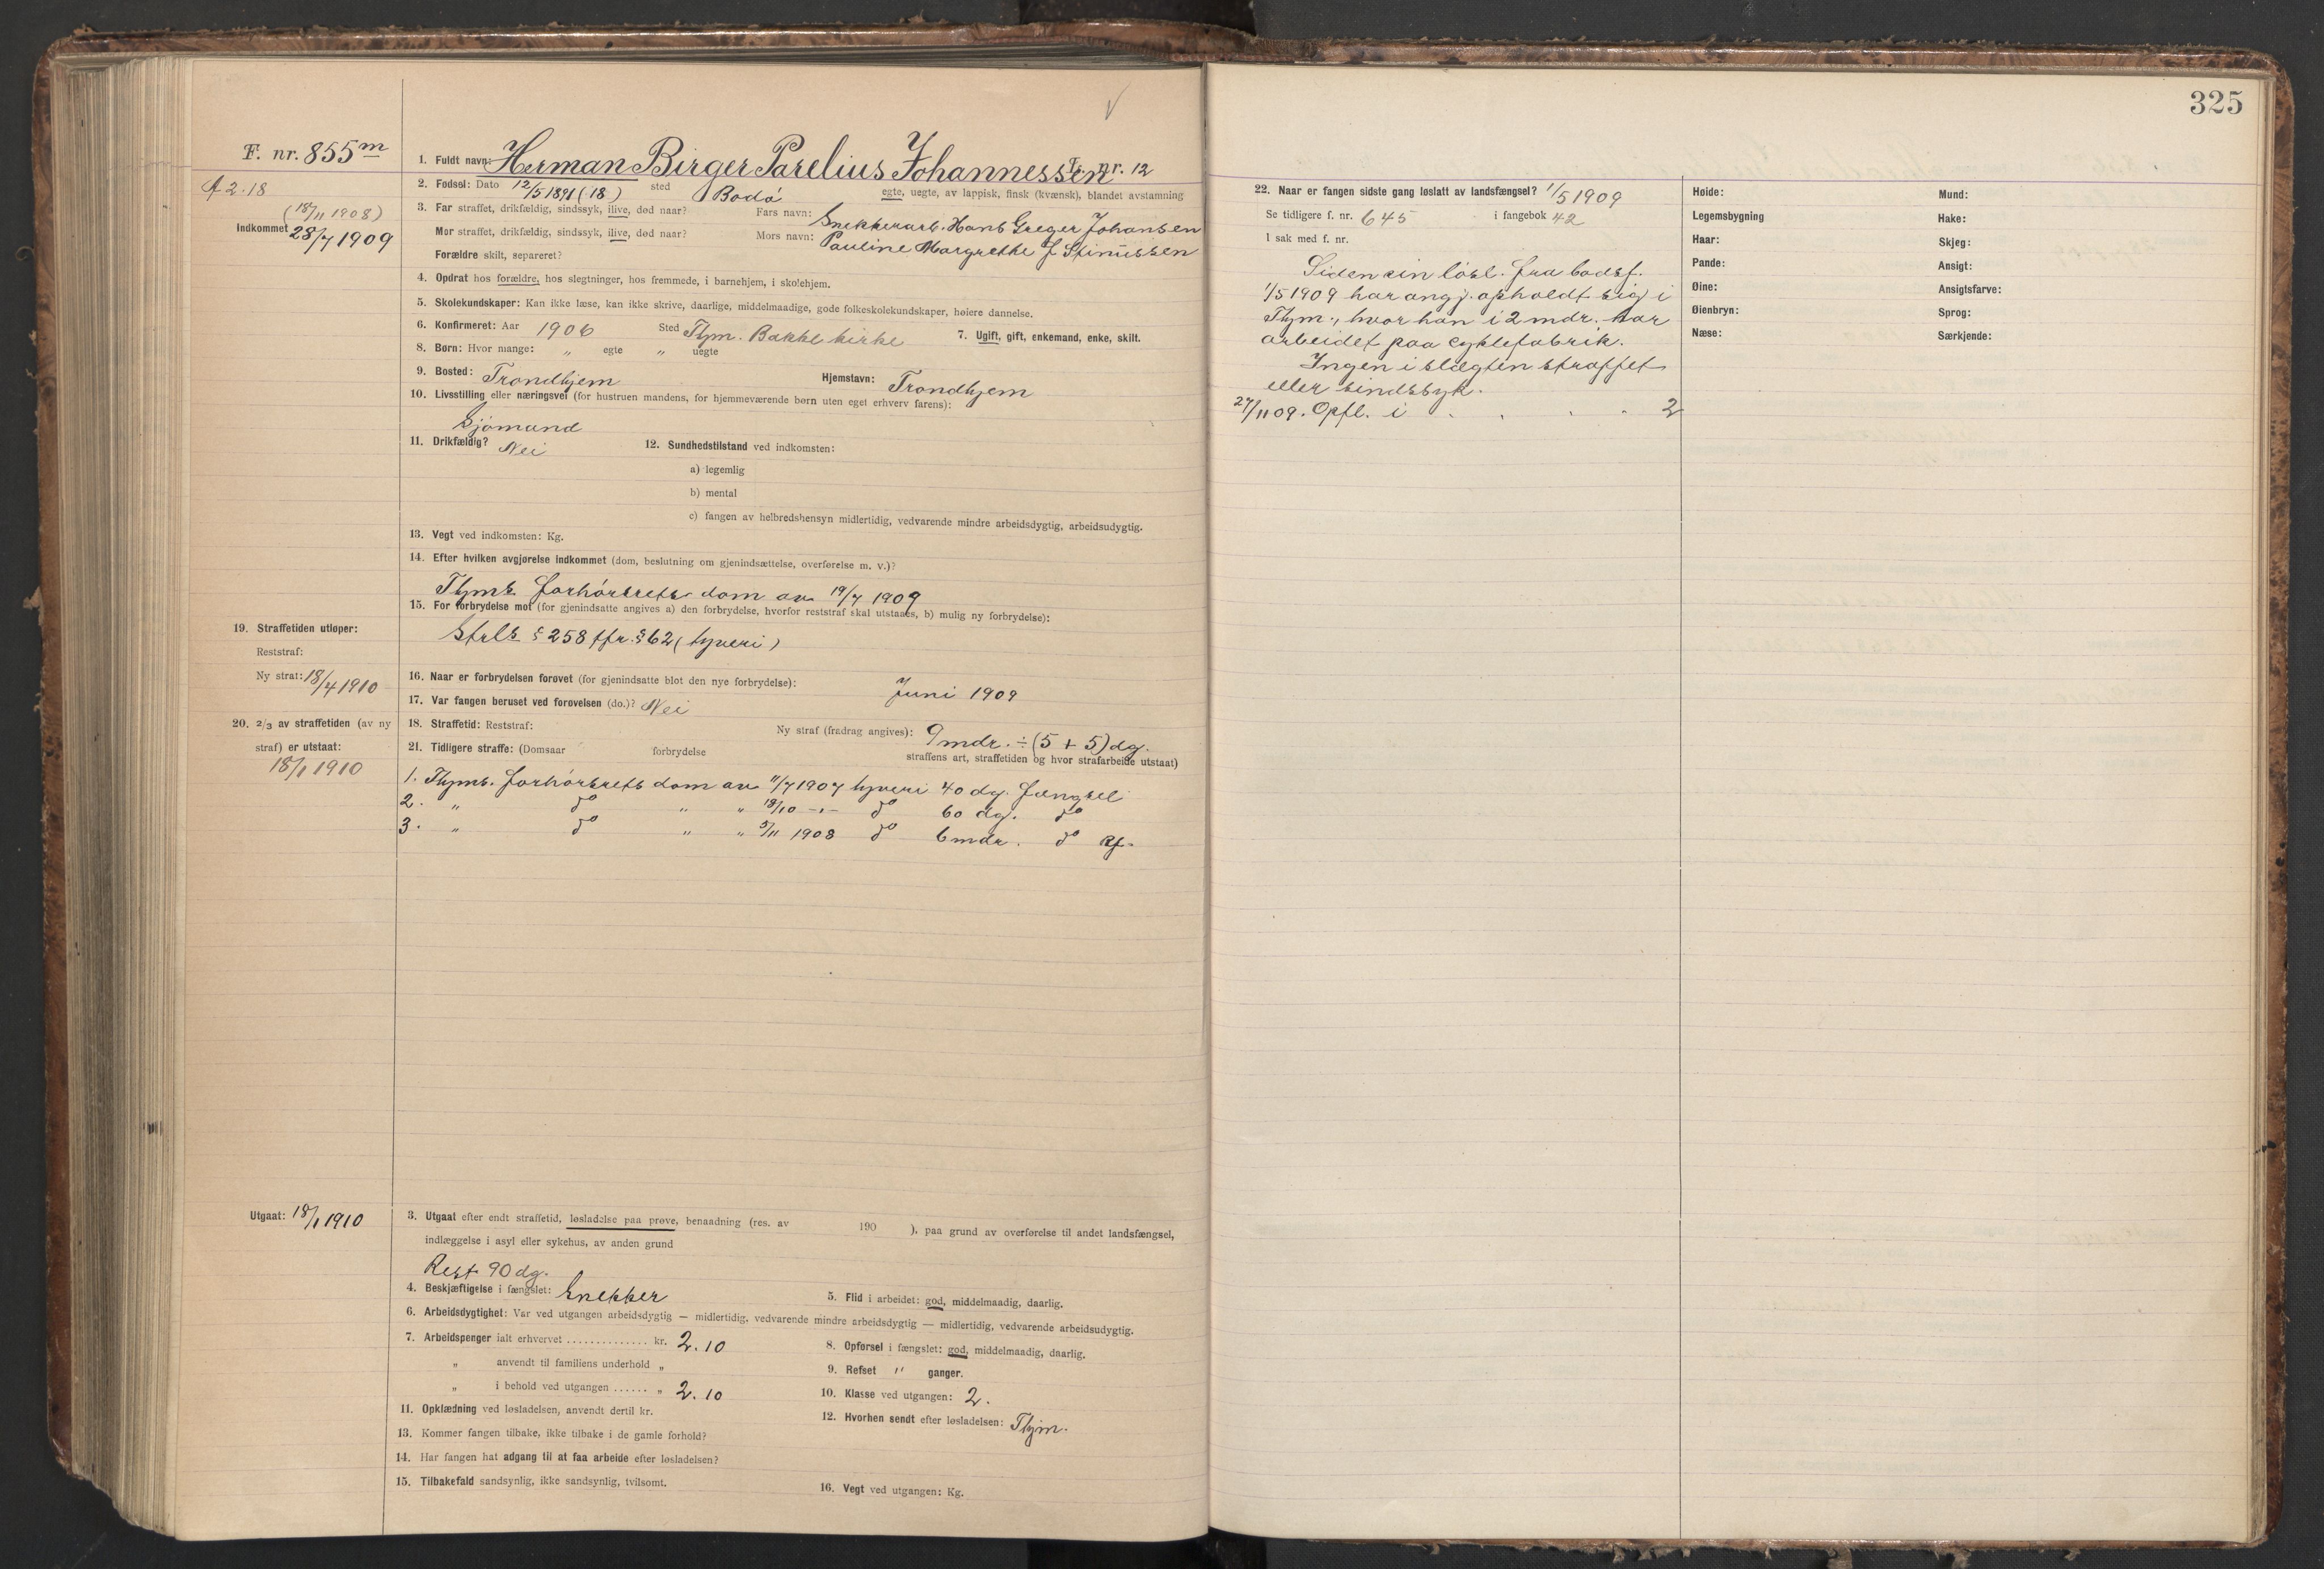 325
F. nr. 855 m
1. Fuldt navn: Herman Birger Parelius Johannessen Fr. nr. 12
A 2.18
2. Fødsel: Dato 12/5 1891 (18) sted Bodø egte, uegte, av lappisk, finsk (kvænsk), blandet avstamning
(18/11 1908)
Indkommet 28/7 1909
3. Far straffet, drikfældig, sindssyk, ilive, død naar? Fars navn: Snekkerarb. Hans Greger Johansen
Mor straffet, drikfældig, sindssyk, ilive, død naar? Mors navn: Pauline Margrethe f
Forældre skilt, separeret?
4. Opdrat hos forældre, hos slegtninger, hos fremmede, i barnehjem, i skolehjem.
5. Skolekundskaper: Kan ikke læse, kan ikke skrive, daarlige, middelmaadige, gode folkeskolekundskaper, høiere dannelse.
6. Konfirmeret: Aar 1906 Sted Thjm. Bakke kirke 7. Ugift, gift, enkemand, enke, skilt.
8. Børn: Hvor mange: " egte " uegte
9. Bosted: Trondhjem Hjemstavn: Trondhjem
10. Livsstilling eller næringsvei (for hustruen mandens, for hjemmeværende børn uten eget erhverv farens):
Sjømand
11. Drikfældig? Nei 12. Sundhedstilstand ved indkomsten:
a) legemlig
b) mental
c) fangen av helbredshensyn midlertidig, vedvarende mindre arbeidsdygtig, arbeidsudygtig.
13. Vegt ved indkomsten: Kg.
14. Efter hvilken avgjørelse indkommet (dom, beslutning om gjenindsættelse, overførelse m. v.)?
Thjms. forhørsrets dom av 19/7 1909
15. For forbrydelse mot (for gjenindsatte angives a) den forbrydelse, hvorfor reststraf skal utstaaes, b) mulig ny forbrydelse):
Strls § 258 jfr. § 62 (tyveri)
19. Straffetiden utløper:
Reststraf:
Ny straf: 18/4 1910
16. Naar er forbrydelsen forøvet (for gjenindsatte blot den nye forbrydelse): Juni 1909
17. Var fangen beruset ved forøvelsen (do.)? Nei
20. 2/3 av straffetiden (av ny
straf) er utstaat:
18/1 1910
18. Straffetid: Reststraf: Ny straf (fradrag angives): 9 mdr. ÷ (5 + 5) dg.
21. Tidligere straffe: (Domsaar forbrydelse straffens art, straffetiden og hvor strafarbeide utstaat)
1. Thjms. forhørsrets dom av 11/7 1907 tyveri 40 dg. fængsel
2. " do " " 18/10 -"- do 60 dg. do
3. " do " " 5/11 1908 do 6 mdr. do Bf.
Utgaat: 18/1 1910
3. Utgaat efter endt straffetid, løsladelse paa prøve, benaadning (res. av 190 ), paa grund av overførelse til andet landsfængsel,
indlæggelse i asyl eller sykehus, av anden grund
Rest 90 dg.
4. Beskjæftigelse i fængslet: Snekker 5. Flid i arbeidet: god, middelmaadig, daarlig.
6. Arbeidsdygtighet: Var ved utgangen arbeidsdygtig — midlertidig, vedvarende mindre arbeidsdygtig — midlertidig, vedvarende arbeidsudygtig.
7. Arbeidspenger ialt erhvervet .............. kr. 2.10 8. Opførsel i fængslet: god, middelmaadig, daarlig.
" anvendt til familiens underhold " 9. Refset " ganger.
" i behold ved utgangen ...... " 2.10 10. Klasse ved utgangen: 2.
11. Opklædning ved løsladelsen, anvendt dertil kr. 12. Hvorhen sendt efter løsladelsen: Thjm.
13. Kommer fangen tilbake, ikke tilbake i de gamle forhold?
14. Har fangen hat adgang til at faa arbeide efter løsladelsen?
15. Tilbakefald sandsynlig, ikke sandsynlig, tvilsomt. 16. Vegt ved utgangen: Kg.
22. Naar er fangen sidste gang løslatt av landsfængsel? 1/5 1909
Se tidligere f. nr. 645 i fangebok 42
I sak med f. nr.
Siden sin løsl. fra bodsf.
1/5 1909 har angj. opholdt sig i
Thjm., hvor han i 2 mdr. har
arbeidet paa cyklefabrik.
Ingen i slægten straffet
eller sindssyk.
27/11 09. Opfl. i . . . . 2
Høide: Mund:
Legemsbygning Hake:
Haar: Skjeg:
Pande: Ansigt:
Øine: Ansigtsfarve:
Øienbryn: Sprog:
Næse: Særkjende: